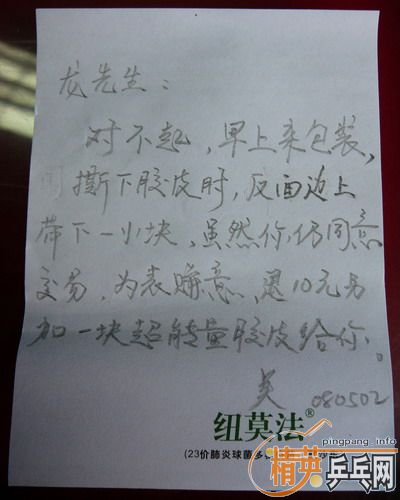 龙先生：
对不起，早上来包装，
撕下胶皮时，反面边上
带下一小块，虽然你仍同意
交易，为表赚意，退10元另
加一块超能量胶皮给你。
吴 080502
纽莫法®
(23价肺炎球菌多
pingpang_info
精英乒乓网